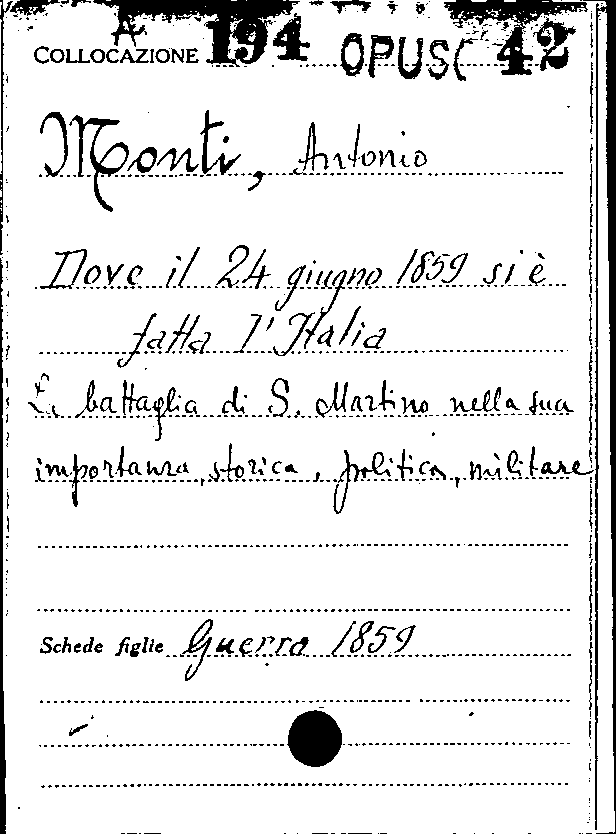 A
COLLOCAZIONE 194 OPUSC 42
Monti, Antonio
Dove il 24 giugno 1859 si è
fatta l'Italia
La battaglia di S. Martino nella sua
importanza, storica, politica, militare
Schede figlie Guerra 1859